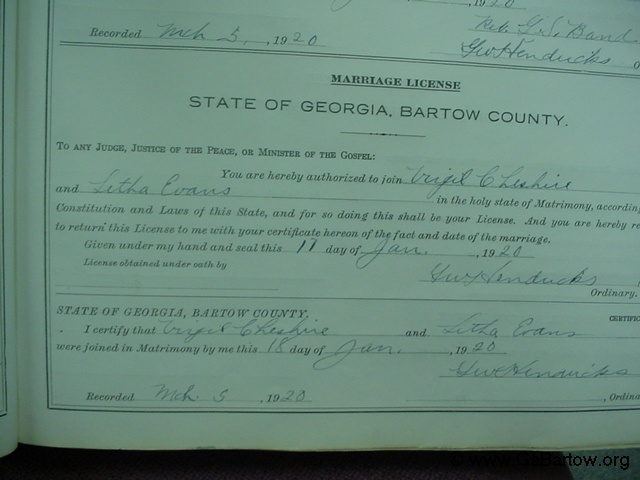 , 1920
Recorded Mch 5, , 1920
Rev. G. S. Band
GW Hendricks
MARRIAGE LICENSE
STATE OF GEORGIA, BARTOW COUNTY.
TO ANY JUDGE, JUSTICE OF THE PEACE, OR MINISTER OF THE GOSPEL:
You are hereby authorized to join Virgil Cheshire
and Letha Evans in the holy state of Matrimony, according
Constitution and Laws of this State, and for so doing this shall be your License. And you are hereby re
to return this License to me with your certificate hereon of the fact and date of the marriage.
Given under my hand and seal this 17 day of Jan. , 1920
License obtained under oath by
GW Hendricks
Ordinary,
STATE OF GEORGIA, BARTOW COUNTY. CERTIFIC
I certify that Virgil Cheshire and Letha Evans
were joined in Matrimony by me this 18 day of Jan. , 1920
GW Hendricks
Recorded Mch. 5 , 1920 , Ordina
www.GaBartow.org